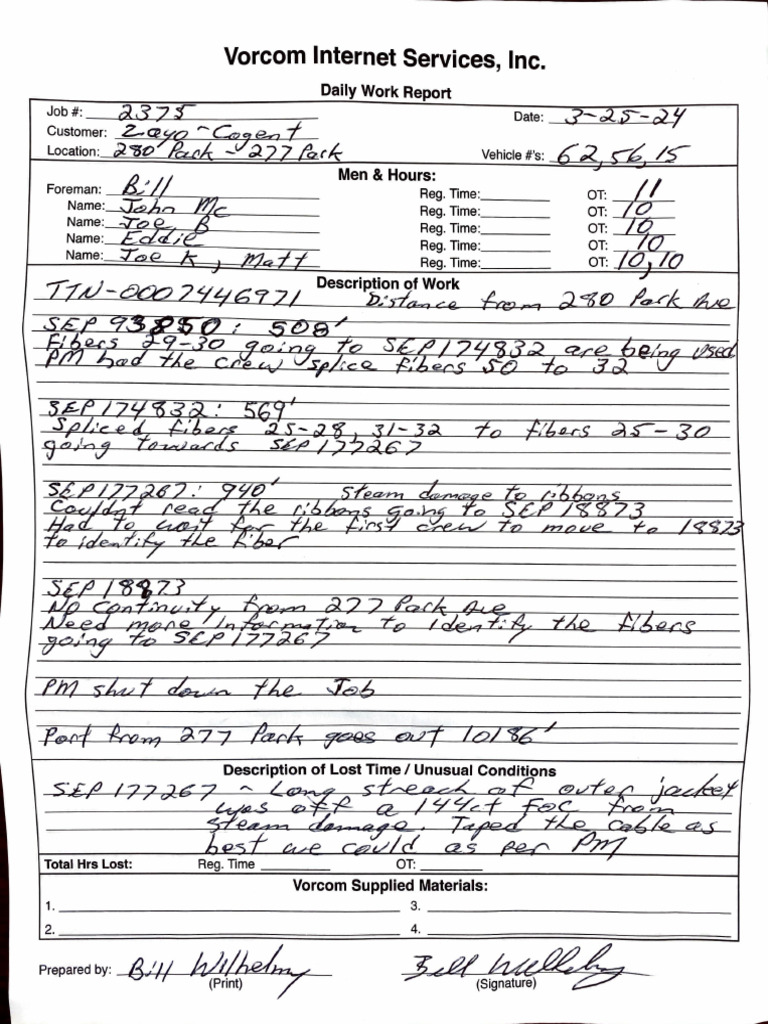 Vorcom Internet Services, Inc.
Daily Work Report
Job #: 2375 Date: 3-25-24
Customer: Zayo - Cogent
Location: 280 Park - 277 Park Vehicle #'s: 62, 56, 15
Men & Hours:
Foreman: Bill Reg. Time: OT: 11
Name: John Mc Reg. Time: OT: 10
Name: Joe B Reg. Time: OT: 10
Name: Eddie Reg. Time: OT: 10
Name: Joe K, Matt Reg. Time: OT: 10, 10
Description of Work
TTN-0007446971 Distance from 280 Park Ave
SEP 93850: 508'
Fibers 29-30 going to SEP174832 are being used
PM had the crew splice fibers 50 to 32
SEP174832: 569'
Spliced fibers 25-28, 31-32 to fibers 25-30
going towards SEP177267
SEP177267: 940' steam damage to ribbons
Couldnt read the ribbons going to SEP 18873
Had to wait for the first crew to move to 18873
to identify the fiber
SEP 18873
No Continuity from 277 Park Ave
Need more information to identify the fibers
going to SEP177267
PM shut down the Job
Port from 277 Park goes out 10186'
Description of Lost Time / Unusual Conditions
SEP 177267 - Long streach of outer jacket
was off a 144ct FOC from
steam damage. Taped the cable as
best we could as per PM
Total Hrs Lost: Reg. Time OT:
Vorcom Supplied Materials:
1. 3.
2. 4.
Prepared by: Bill Wilhelmy
(Print) (Signature)